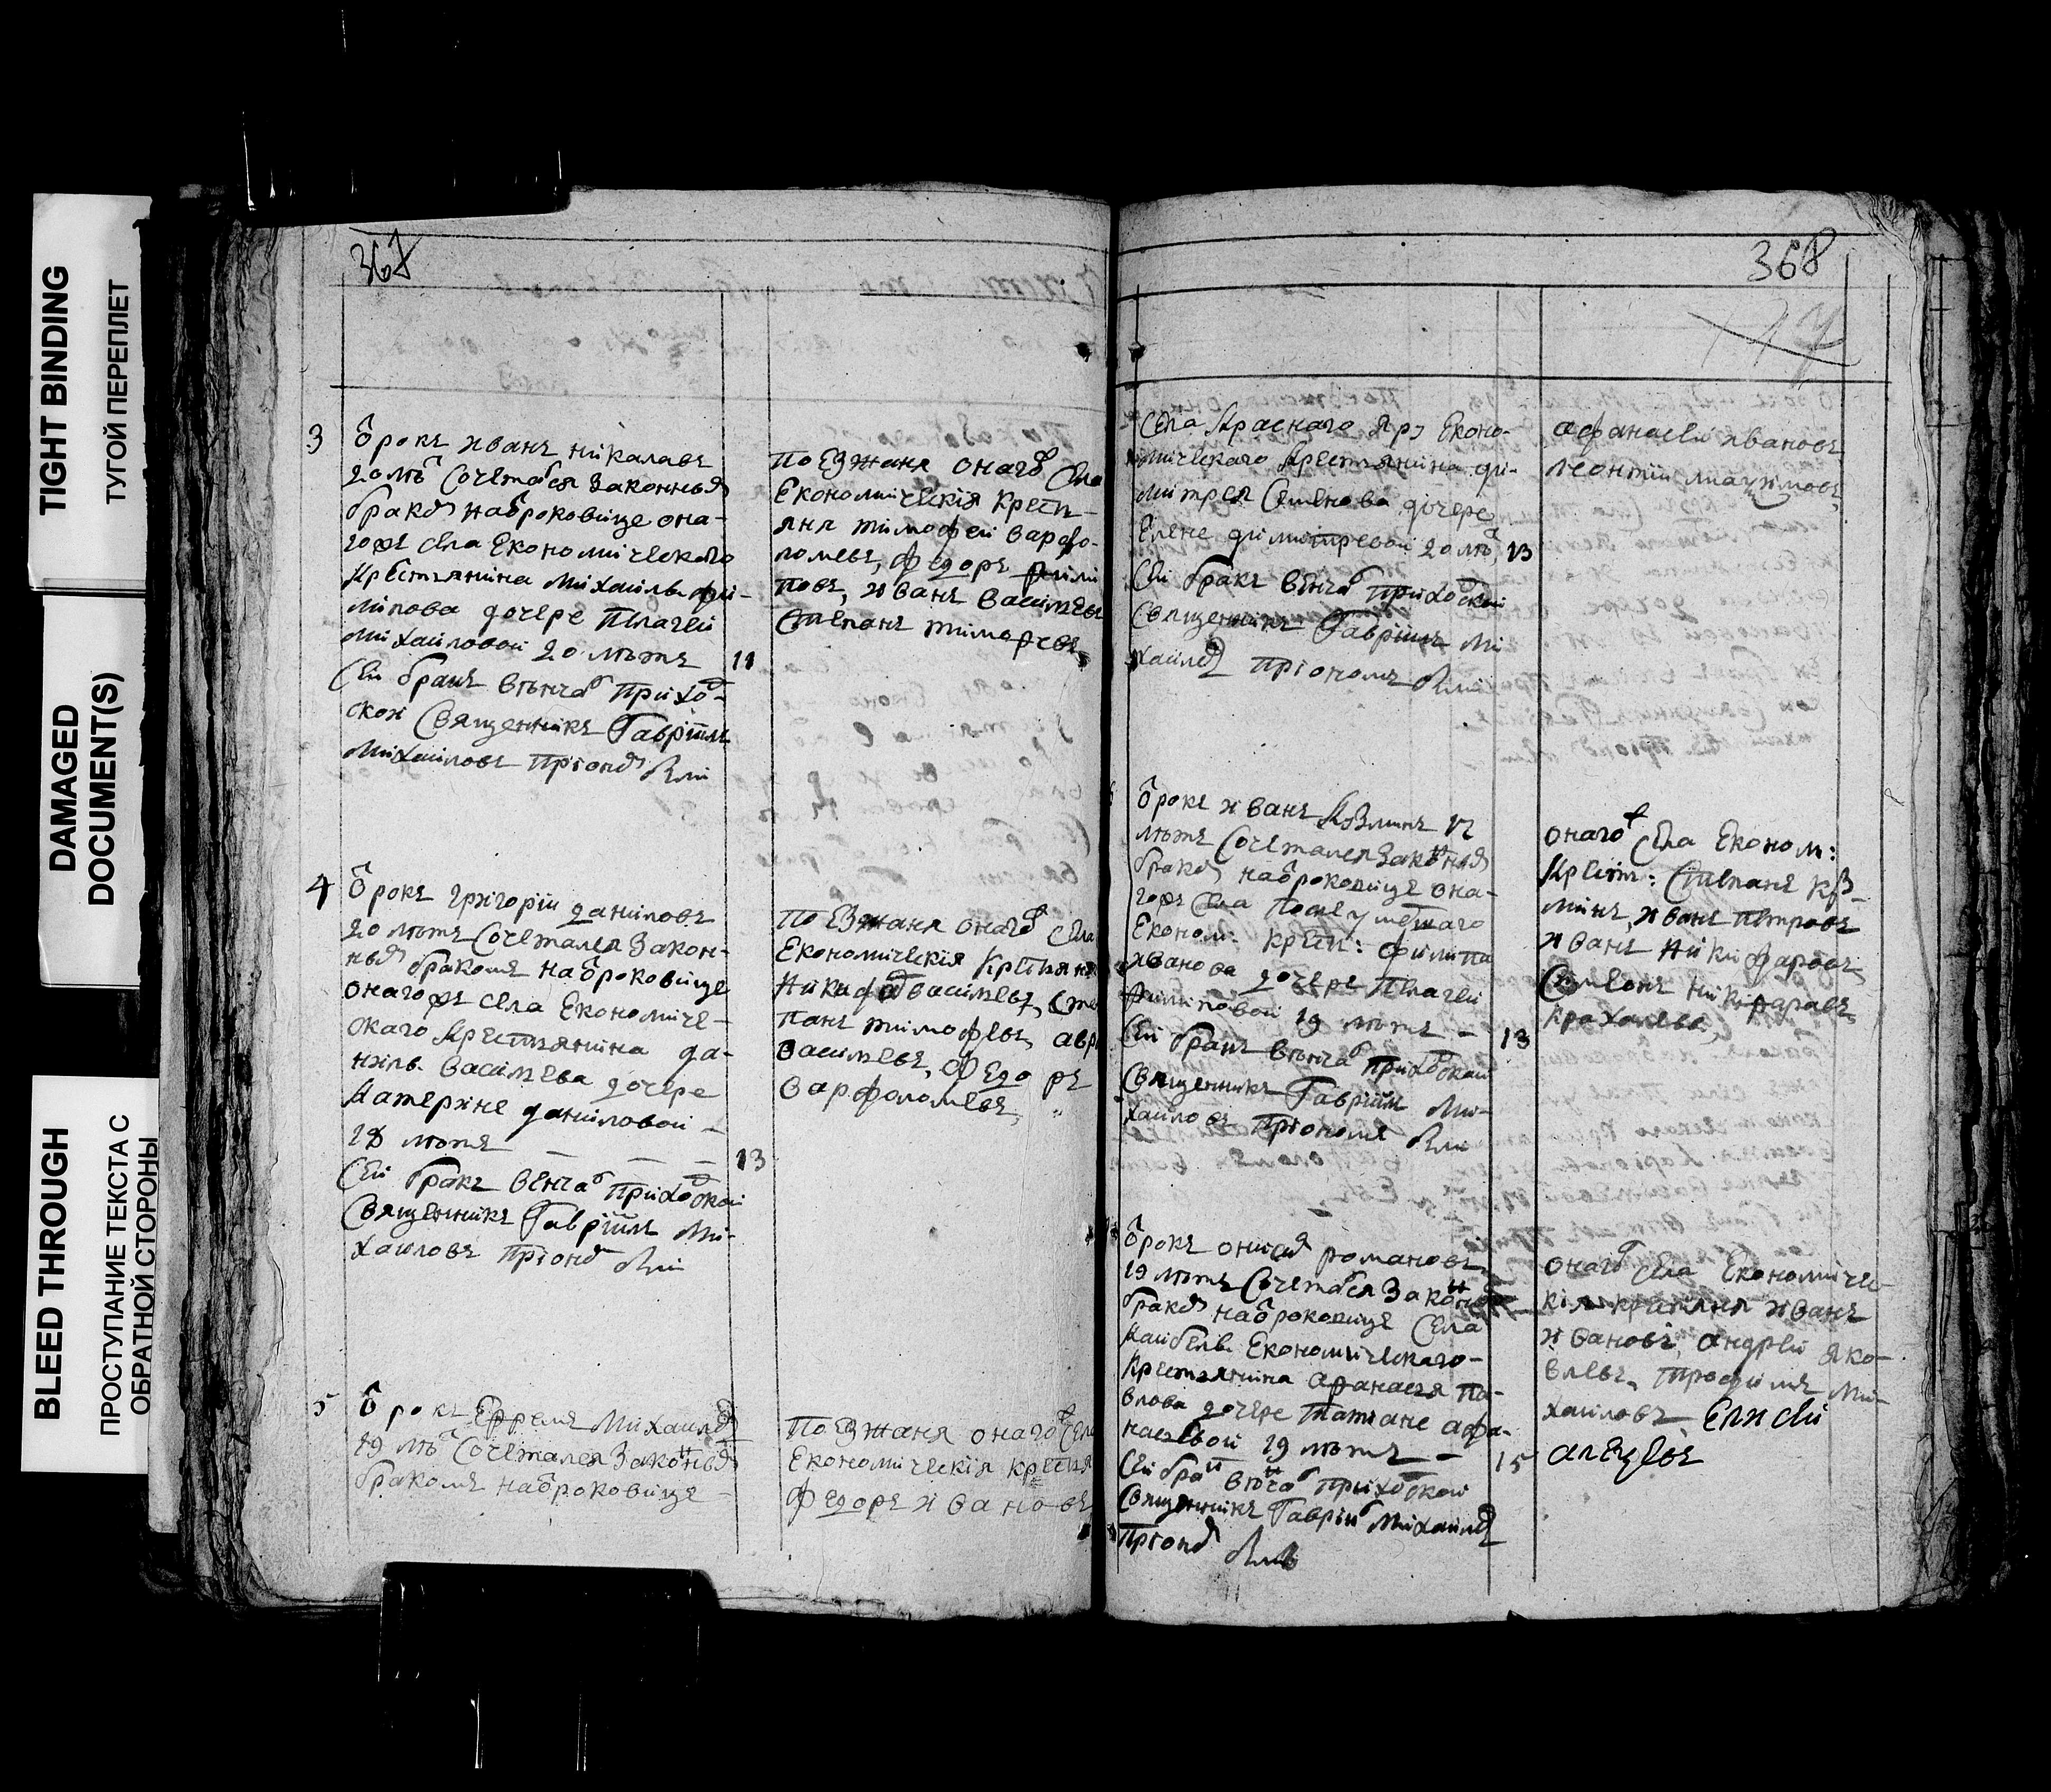 TIGHT BINDING
ТУГОЙ ПЕРЕПЛЕТ
DAMAGED
DOCUMENT(S)
BLEED THROUGH
ПРОСТУПАНИЕ ТЕКСТА С
ОБРАТНОЙ СТОРОНЫ
367
3
Ѿрокъ иванъ николаевъ
20 лѣтъ Сочетался законнымъ
бракомъ наѿроковице она-
гожъ села Економическаго
крестьянина михаилы фи-
липова дочере пелагеи
михаиловой 20 лѣтъ
11
Сей бракъ вѣнчалъ прихоⷣ-
скои Священникъ Гавріилъ
михаиловъ при ономъ были
поезжаня онаго села
Економическія крестья-
яня тимофеи варфо-
ломеевъ, федоръ фили
повъ, иванъ васильевъ
Степанъ тимофеевъ
4
Ѿрокъ григоріи даниловъ
20 лѣтъ Сочетался закон-
нымъ бракомъ наѿроковице
онагожъ села Економиче-
скаго крестьянина да-
нилы васильева дочере
катерине даниловой -
18 лѣтъ
13
Сей бракъ венчалъ прихоⷣскои
Священникъ Гавріилъ ми-
хаиловъ при ономъ были
поезжаня онаго села
Економическія крестьяня
никифоръ васильевъ, Сте
панъ тимофеевъ,
васильевъ, федоръ
варфоломеевъ
5
Ѿрокъ Ефремъ михаиловъ
19 лѣтъ Сочетался законнымъ
бракомъ наѿроковице
поезжаня онаго села
Економическія крестьяня
федоръ ивановъ
368
Села краснаго яру Еконо-
мическаго крестьянина ди-
митрея Семенова дочере
Елене димитревой 20 лѣтъ
13
Сей бракъ венчалъ прихоⷣскои
Священникъ Гавріилъ ми
хаиловъ при ономъ были
афанасеи ивановъ
леонтіи
Ѿрокъ иванъ козминъ 17
лѣтъ Сочетался законнымъ
бракомъ наѿроковице она-
гожъ села
Економ: крест: филипа
иванова дочере пелагеи
филиповой 19 лѣтъ -
13
Сей бракъ вѣнчалъ прихоⷣскои
Священникъ Гавріилъ ми-
хаиловъ при ономъ были
онаго села Економ:
крест: Степанъ коз-
минъ, иванъ петровъ
иванъ никифаровъ
Симеонъ никифаравъ
Ѿрокъ романовъ
19 лѣтъ Сочетался законнымъ
бракомъ наѿроковице села
Економическаго-
крестьянина афанасея па-
влова дочере татиане афа-
насевой 19 лѣтъ -
15
Сей бракъ вѣнчалъ прихоⷣскои
Священникъ Гавріилъ михаиловъ
при ономъ были
онаго села Економичес-
кія крестьяня иванъ
ивановъ, андреи яко-
влевъ, трофимъ ми-
хаиловъ Елисеи